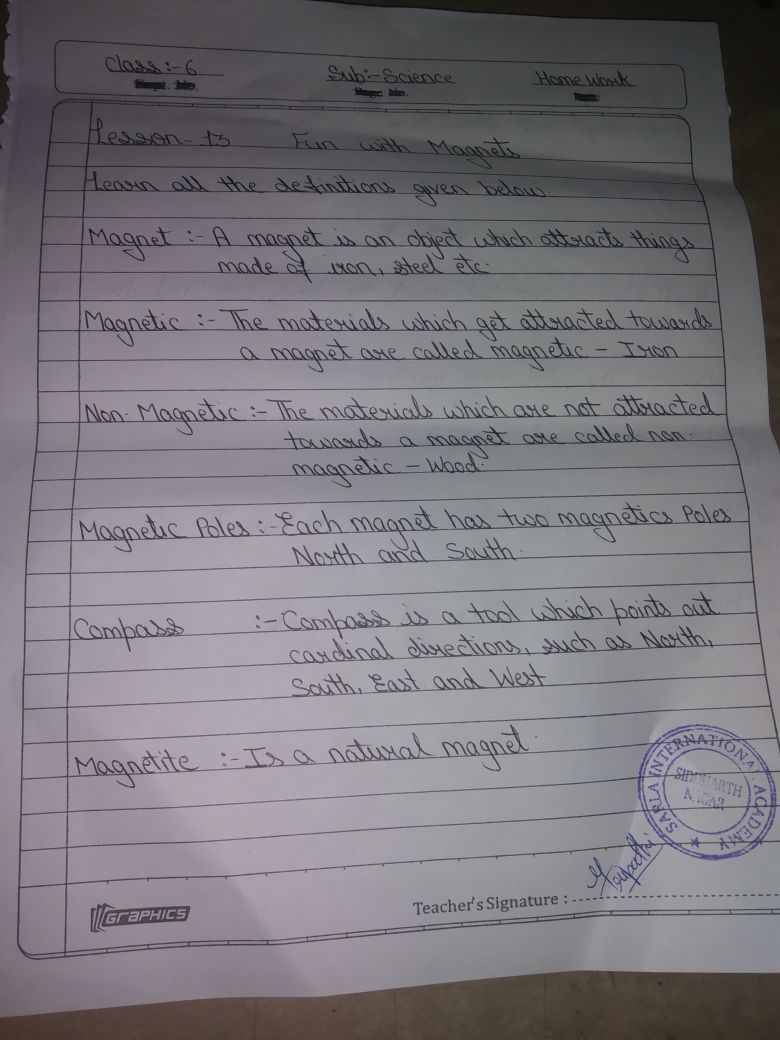 Class:-6
Sub:-Science
Home Work
Lesson-13 Fun with Magnets
Learn all the definitions given below
Magnet :- A magnet is an object which attracts things
made of iron, steel etc.
Magnetic :- The materials which get attracted towards
a magnet are called magnetic - Iron
Non-Magnetic :- The materials which are not attracted
towards a magnet are called non-
magnetic - Wood.
Magnetic Poles :- Each magnet has two magnetics Poles
North and South.
Compass :- Compass is a tool which points out
cardinal directions, such as North,
South, East and West
Magnetite :- Is a natural magnet.
SARLA INTERNATIONAL ACADEMY
SIDDHARTH
NAGAR
GRAPHICS
Teacher's Signature :